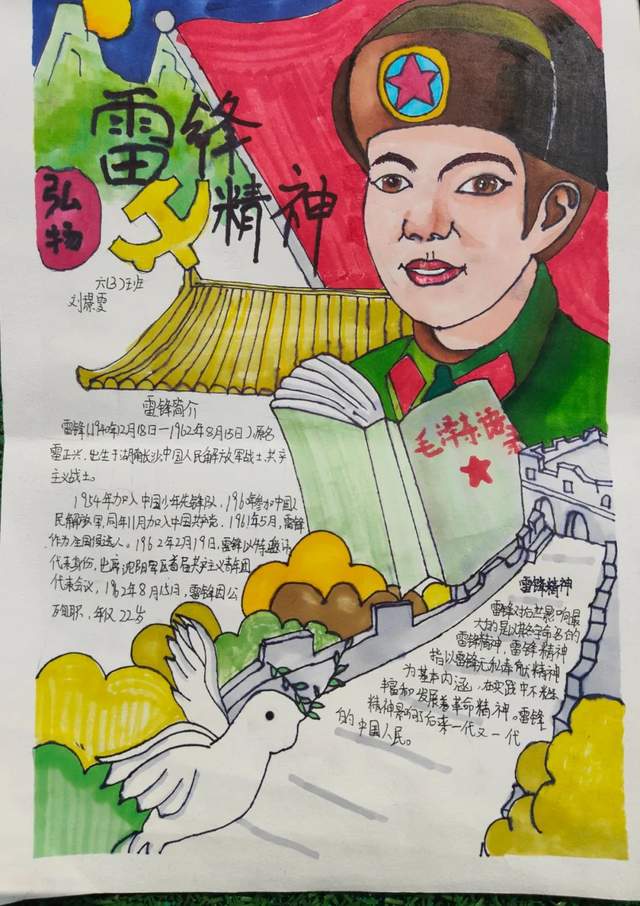 雷锋
弘扬
精神
六(3)班
刘
雷锋简介
雷锋(1940年12月18日—1962年8月15日)原名
雷正兴,出生于湖南长沙,中国人民解放军战士,共产
主义战士。
1954年加入中国少年先锋队,1960年参加中国人
民解放军,同年11月加入中国共产党。1961年5月,雷锋
作为全国候选人。1962年2月19日,雷锋以特邀
代表身份,出席沈阳军区首届共产主义青年团
代表会议,1962年8月15日,雷锋因公
殉职,年仅22岁
毛泽东
雷锋精神
雷锋对后世影响最
大的是以雷锋命名的
雷锋精神,雷锋精神
指以雷锋无私奉献精神
为基本内涵,在实践中不断
丰富和发展着革命精神。雷锋
精神影响了后来一代又一代
的中国人民。